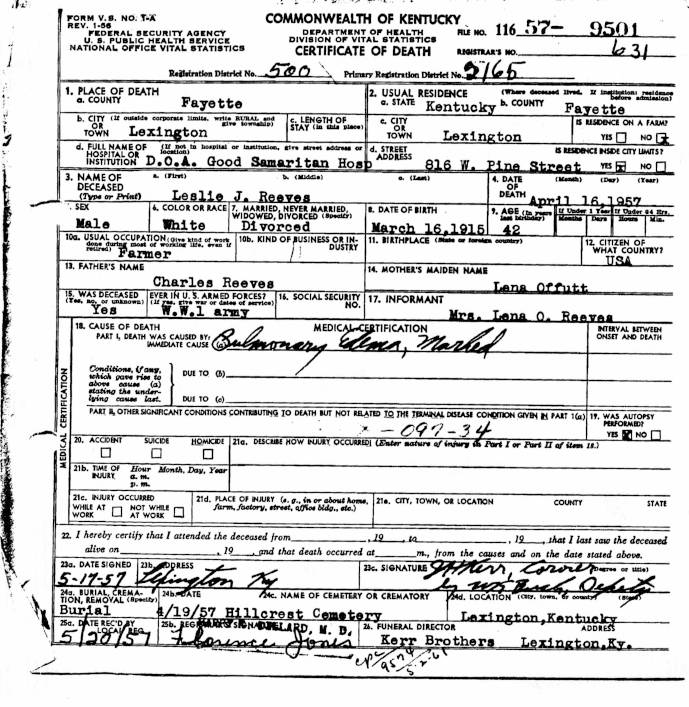 FORM V.S. NO. 1-A
REV. 1-56
FEDERAL SECURITY AGENCY
U. S. PUBLIC HEALTH SERVICE
NATIONAL OFFICE VITAL STATISTICS
COMMONWEALTH OF KENTUCKY
DEPARTMENT OF HEALTH
DIVISION OF VITAL STATISTICS
CERTIFICATE OF DEATH
FILE NO. 116 57- 9501
REGISTRAR'S NO. 631
Registration District No. 500 Primary Registration District No. 2165
1. PLACE OF DEATH
a. COUNTY Fayette
2. USUAL RESIDENCE (Where deceased lived. If institution: residence before admission)
a. STATE Kentucky b. COUNTY Fayette
b. CITY (If outside corporate limits, write RURAL and give township)
OR
TOWN Lexington
c. LENGTH OF STAY (in this place)
c. CITY
OR
TOWN Lexington
IS RESIDENCE ON A FARM?
YES NO X
d. FULL NAME OF (If not in hospital or institution, give street address or location)
HOSPITAL OR
INSTITUTION D.O.A. Good Samaritan Hosp
d. STREET ADDRESS 816 W. Pine Street
IS RESIDENCE INSIDE CITY LIMITS?
YES X NO
3. NAME OF DECEASED (Type or Print)
a. (First) b. (Middle) c. (Last)
Leslie J. Reeves
4. DATE OF DEATH (Month) (Day) (Year)
April 16,1957
5. SEX
Male
6. COLOR OR RACE
White
7. MARRIED, NEVER MARRIED, WIDOWED, DIVORCED (Specify)
Divorced
8. DATE OF BIRTH
March 16,1915
9. AGE (In years last birthday)
42
If Under 1 Year If Under 24 Hrs.
Months Days Hours Min.
10a. USUAL OCCUPATION (Give kind of work done during most of working life, even if retired)
Farmer
10b. KIND OF BUSINESS OR INDUSTRY
11. BIRTHPLACE (State or foreign country)
12. CITIZEN OF WHAT COUNTRY?
USA
13. FATHER'S NAME
Charles Reeves
14. MOTHER'S MAIDEN NAME
Lena Offutt
15. WAS DECEASED EVER IN U. S. ARMED FORCES?
(Yes, no, or unknown) (If yes, give war or dates of service)
Yes W.W.1 army
16. SOCIAL SECURITY NO.
17. INFORMANT
Mrs. Lena O. Reeves
18. CAUSE OF DEATH
MEDICAL CERTIFICATION
INTERVAL BETWEEN ONSET AND DEATH
PART I. DEATH WAS CAUSED BY:
IMMEDIATE CAUSE (a) Pulmonary Edema, Marked
Conditions, if any, which gave rise to above cause (a) stating the underlying cause last.
DUE TO (b)
DUE TO (c)
PART II. OTHER SIGNIFICANT CONDITIONS CONTRIBUTING TO DEATH BUT NOT RELATED TO THE TERMINAL DISEASE CONDITION GIVEN IN PART 1(a)
x -097-34
19. WAS AUTOPSY PERFORMED?
YES X NO
MEDICAL CERTIFICATION
20. ACCIDENT SUICIDE HOMICIDE
21a. DESCRIBE HOW INJURY OCCURRED (Enter nature of injury in Part I or Part II of item 18.)
21b. TIME OF INJURY
Hour Month, Day, Year
a. m.
p. m.
21c. INJURY OCCURRED
WHILE AT WORK NOT WHILE AT WORK
21d. PLACE OF INJURY (e. g., in or about home, farm, factory, street, office bldg., etc.)
21e. CITY, TOWN, OR LOCATION COUNTY STATE
22. I hereby certify that I attended the deceased from , 19 to , 19 , that I last saw the deceased
alive on , 19 , and that death occurred at m., from the causes and on the date stated above.
23a. DATE SIGNED
5-17-57
23b. ADDRESS
Lexington Ky
23c. SIGNATURE (Degree or title)
Kerr, Coroner
by Deputy
24a. BURIAL, CREMATION, REMOVAL (Specify)
Burial
24b. DATE
4/19/57
24c. NAME OF CEMETERY OR CREMATORY
Hillcrest Cemetery
24d. LOCATION (City, town, or county) (State)
Lexington,Kentucky
25a. DATE REC'D BY LOCAL REG.
5/20/57
25b. REGISTRAR'S SIGNATURE
DILLARD, M. D.
Florence Jones
26. FUNERAL DIRECTOR ADDRESS
Kerr Brothers Lexington,Ky.
9574
5-2-61